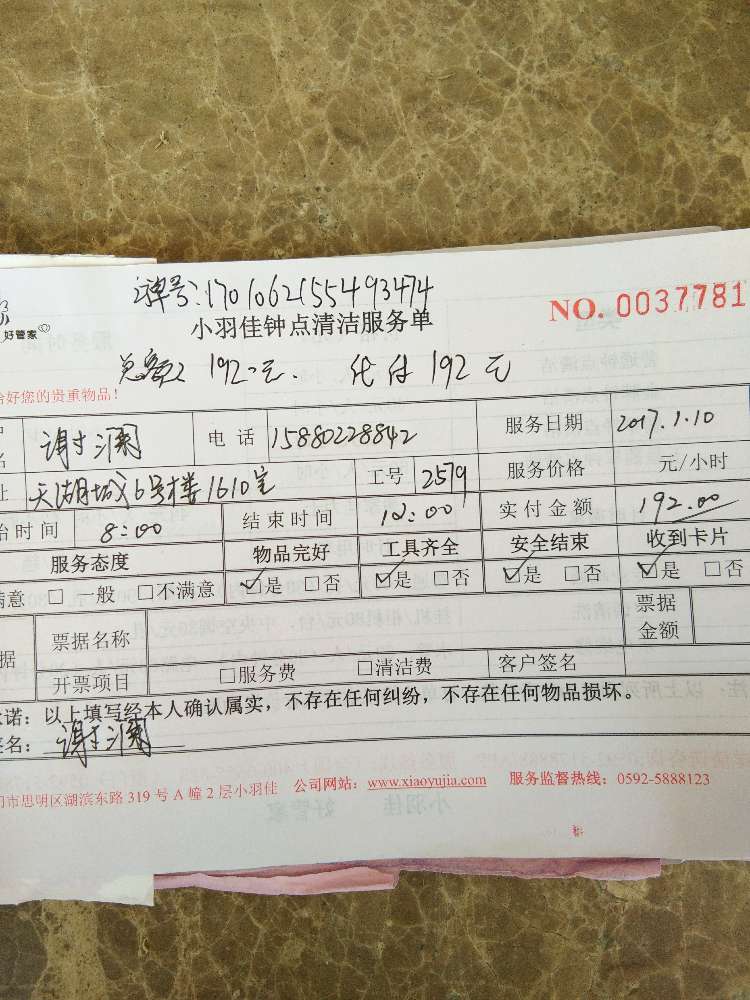 订单号:1701062155493474
NO. 0037781
好管家
小羽佳钟点清洁服务单
总额 192元. 代付 192 元
好您的贵重物品!
名 谢 澜 电话 15880228842 服务日期 2017.1.10
址 天湖城 6号楼1610室 工号 2579 服务价格 元/小时
始时间 8:00 结束时间 12:00 实付金额 192.00
服务态度 物品完好 工具齐全 安全结束 收到卡片
满意 □一般 □不满意 ☑是 □否 ☑是 □否 ☑是 □否 ☑是 □否
据 票据名称 票据金额
开票项目 □服务费 □清洁费 客户签名
诺:以上填写经本人确认属实,不存在任何纠纷,不存在任何物品损坏。
签名: 谢 澜
门市思明区湖滨东路 319 号 A 幢 2 层小羽佳 公司网站:www.xiaoyujia.com 服务监督热线:0592-5888123